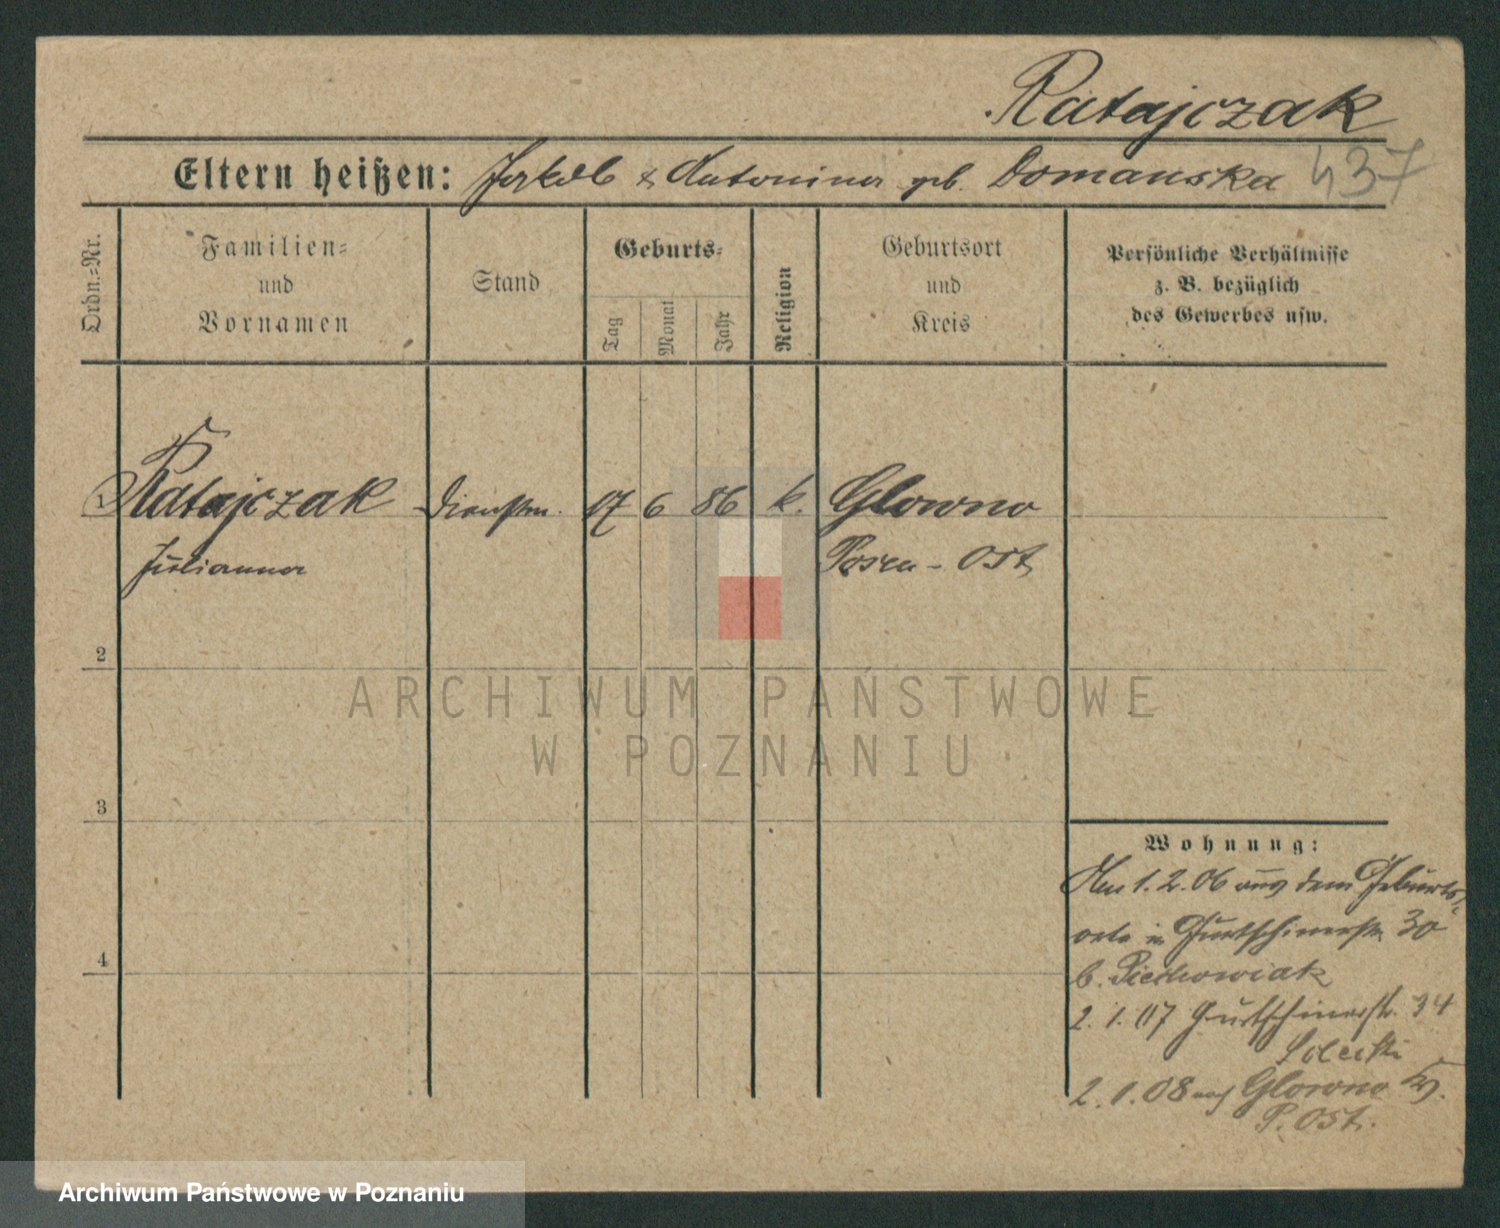 Ratajczak
Eltern heißen: Jakob & Antonina geb. Domanska 437
Ordn.=Nr.
Familien=
und
Vornamen
Stand
Geburts=
Tag
Monat
Jahr
Religion
Geburtsort
und
Kreis
Persönliche Verhältnisse
z. B. bezüglich
des Gewerbes usw.
1 Ratajczak Dienstm. 17 6 86 k. Glowno
Julianna Posen - Ost
2
3
4
Wohnung:
Am 1.2.06 aus dem Geburts-
orte in Gurtschinerstr. 30
b. Piechowiak
2.1.07 Gurtschinerstr. 34
2.1.08 nach Glowno Kr.
P. Ost.
ARCHIWUM PAŃSTWOWE
W POZNANIU
Archiwum Państwowe w Poznaniu